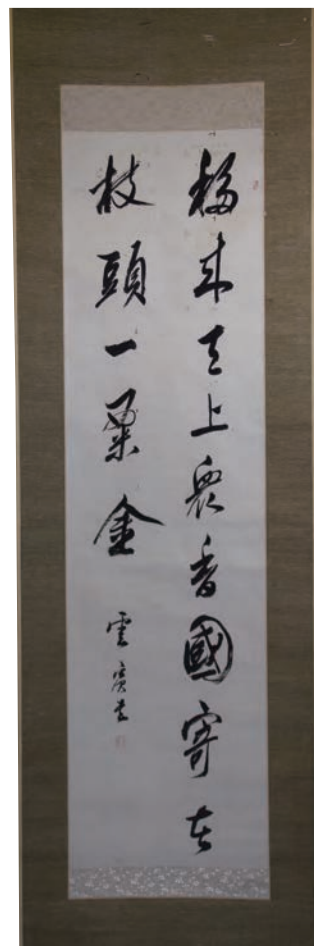 移来天上衆香國寄在
枝頭一粟金